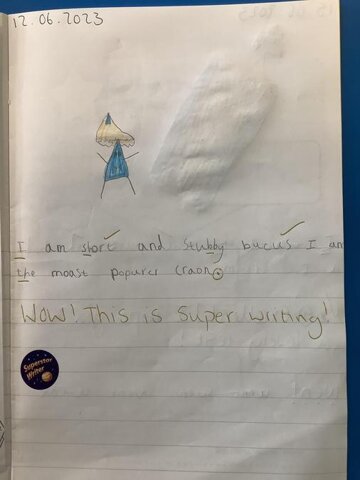 12.06.2023
I am stort and stubby bucus I am
the moast popurer craon.
WOW! This is super writing!
Superstar
Writer